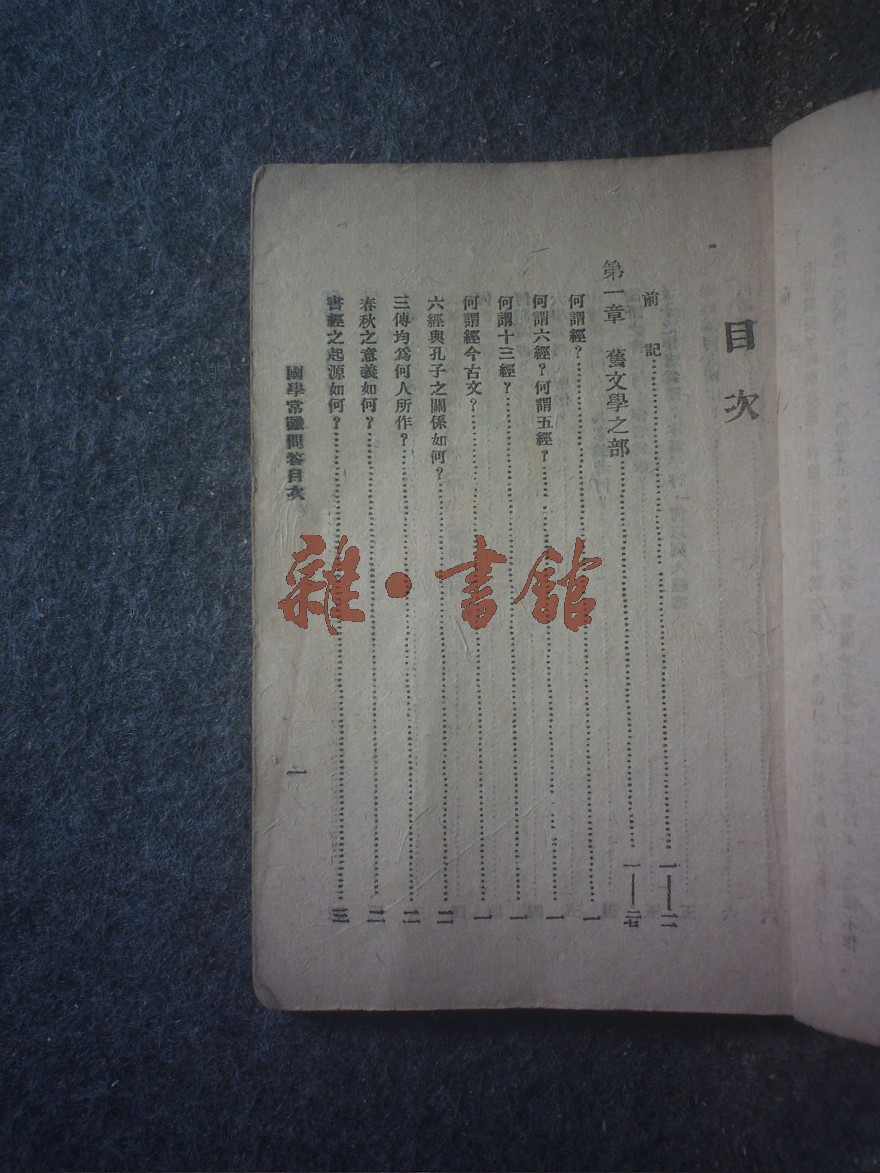 目次
前記……一——二
第一章 舊文學之部……一——二五
何謂經？……一
何謂六經？何謂五經？……一
何謂十三經？……一
何謂經今古文？……一
六經與孔子之關係如何？……二
三傳均為何人所作？……二
春秋之意義如何？……二
書經之起源如何？……三
國學常識問答目次
一
雜·書館